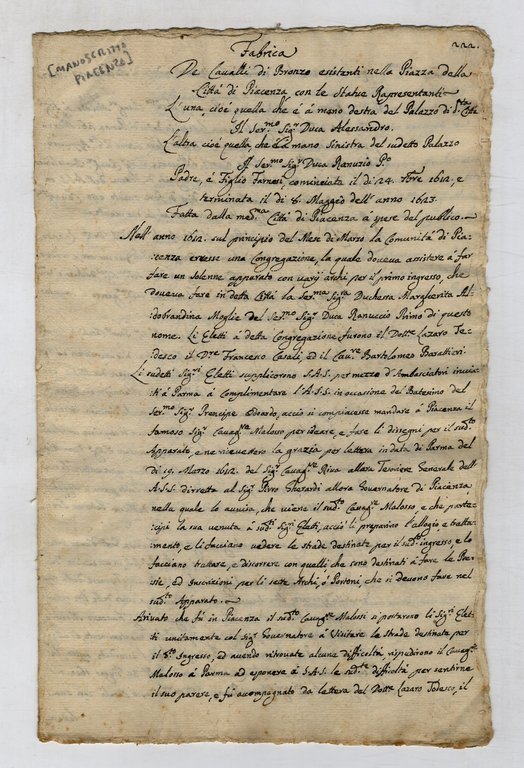 [MANOSCRITTO
PIACENZA]
222.
Fabrica
De Cavalli di Bronzo esistenti nella Piazza della
Città di Piacenza con le Statue Rapresentanti
L'una, cioè quella che è à mano destra del Palazzo di Sta Città
Il Ser.mo Sigr Duca Alessandro.
L'altra cioè quella, che è à mano Sinistra del sudetto Palazzo
Il Ser.mo Sigr Duca Ranuzio Po
Padre, e Figlio Farnesi, cominciata il di 24. 9bre 1612, e
terminata il di 8. Maggio dell'anno 1623.
Fatta dalla med.ma Città di Piacenza a spese del publico.
Nell'anno 1612. sul principio del Mese di Marzo la Comunità di Pia-
cenza eresse una Congregazione, la quale doveva assistere à far
fare un solenne apparato con varij archi per il primo ingresso, che
doveva fare in detta Città la Ser.ma Sigra Duchessa Margherita Al-
dobrandina Moglie del Ser.mo Sigr Duca Ranuccio Primo di questo
nome. Li Eletti a detta Congregazione furono il Dotre Lazaro Te-
desco il Dre Francesco Casali, ed il Cavre Bartolomeo Barattieri.
Li sudetti Sigri Eletti supplicorono S.A.S. per mezzo d'Ambasciatori invia-
ti à Parma à Complimentare l'A.S.S. in occasione del Batesimo del
Ser.mo Sigr Prencipe Odoardo, acciò si compiacesse mandare a Piacenza il
famoso Sigr Cavagre Malosso per ideare, e fare li dissegni per il sudto
Apparato, e ne riceverono la grazia per lettera in data di Parma del
di 19. Marzo 1612. del Sigr Cavagre Riva allora Tesoriere Generale dell'
A.S.S. dirretta al Sigr Pirro Gherardi allora Governatore di Piacenza,
nella quale lo avvisa, che viene il sudto Cavagre Malosso, e che parte-
cipi la sua venuta à sudti Sigri Eletti, acciò li preparino l'allogio e tratta-
mento, e li facciano vedere le strade destinate per il sudto ingresso, e lo
facciano trattare, e discorrere con quelli che sono destinati à fare le Poe-
sie, ed Inscrizioni per li sette Archi, o Portoni, che si devono fare nel
sudto Apparato.
Arivato che fù in Piacenza il sudto Cavagre Malossi si portarono li Sigri Elet-
ti unitamente col Sigr Governatore à Visitare le strade destinate per
il sdto Ingresso, ed avendo ritrovate alcune difficoltà rispedirono il Cavagre
Malosso à Parma ad esponere à S.A.S. le sudte difficoltà per sentirne
il suo parere, e fù acompagnato da lettera del Dotre Lazaro Tedesco, il